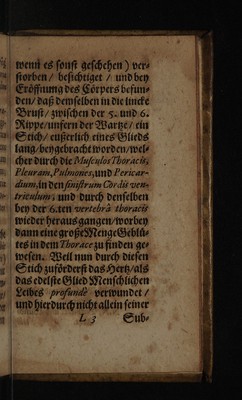 wenn es sonst geschehen) ver-
storben / besichtiget / und bey
Eröffnung des Cörpers befun-
den / daß demselben in die lincke
Brust / zwischen der 5. und 6.
Rippe / unfern der Wartze / ein
Stich / eußerlich eines Glieds
lang / beygebracht worden / wel-
cher durch die Musculos Thoracis,
Pleuram, Pulmones, und Pericar-
dium, in den sinistrum Cordis ven-
triculum, und durch denselben
bey der 6.ten vertebrâ thoracis
wieder herausgangen / worbey
dann eine große Menge Geblü-
tes in dem Thorace zu finden ge-
wesen. Weil nun durch diesen
Stich zuförderst das Hertz / als
das edelste Glied Menschlichen
Leibes profundè verwundet /
und hierdurch nicht allein seiner
L 3 Sub-